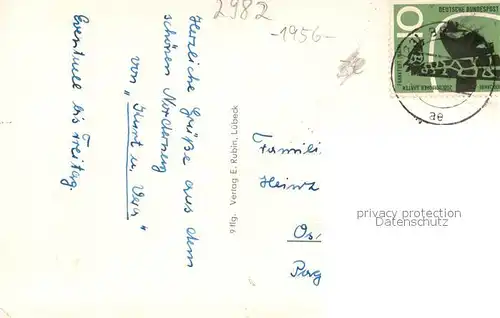 2982
-1956-
DEUTSCHE BUNDESPOST
10
ae
Herzliche Grüße aus dem
schönen Norderney
von "Kurt u.
Eventuell bis Freitag.
9 Hg. Verlag E. Rubin, Lübeck
Familie
Heinz
Os
privacy protection
Datenschutz